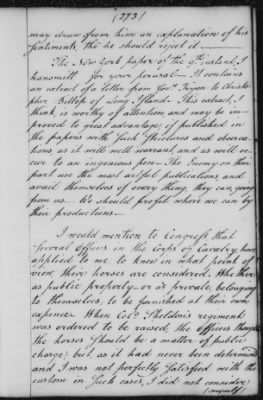 (273)
may draw from him an explanation of his
sentiments, tho' he should reject it.
The New York paper of the 9th instant, I
transmitt for your perusal. It contains
an extract of a letter from Govr Tryon to Christo-
pher Billop of Long Island. This extract, I
think, is worthy of attention, and may be im-
proved to great advantage; if published in
the papers with such strictures and observa-
tions, as it will well warrant, and as will oc-
cur to an ingenious pen. The Enemy on their
part use the most artful publications, and
avail themselves of every thing, they can, going
from us. We should profit where we can by
their productions.
I would mention to Congress that
several Officers in the corps of Cavalry, have
applied to me, to know in what point of
view, their horses are considered. Whether
as public property or as private, belonging
to themselves, to be furnished at their own
expence. When Colo. Sheldon's regiment
was ordered to be raised, the Officers thought
the horses should be a matter of public
charge; but as it had never been determined
and I was not perfectly satisfied with the
custom in such cases, I did not consider
(myself)